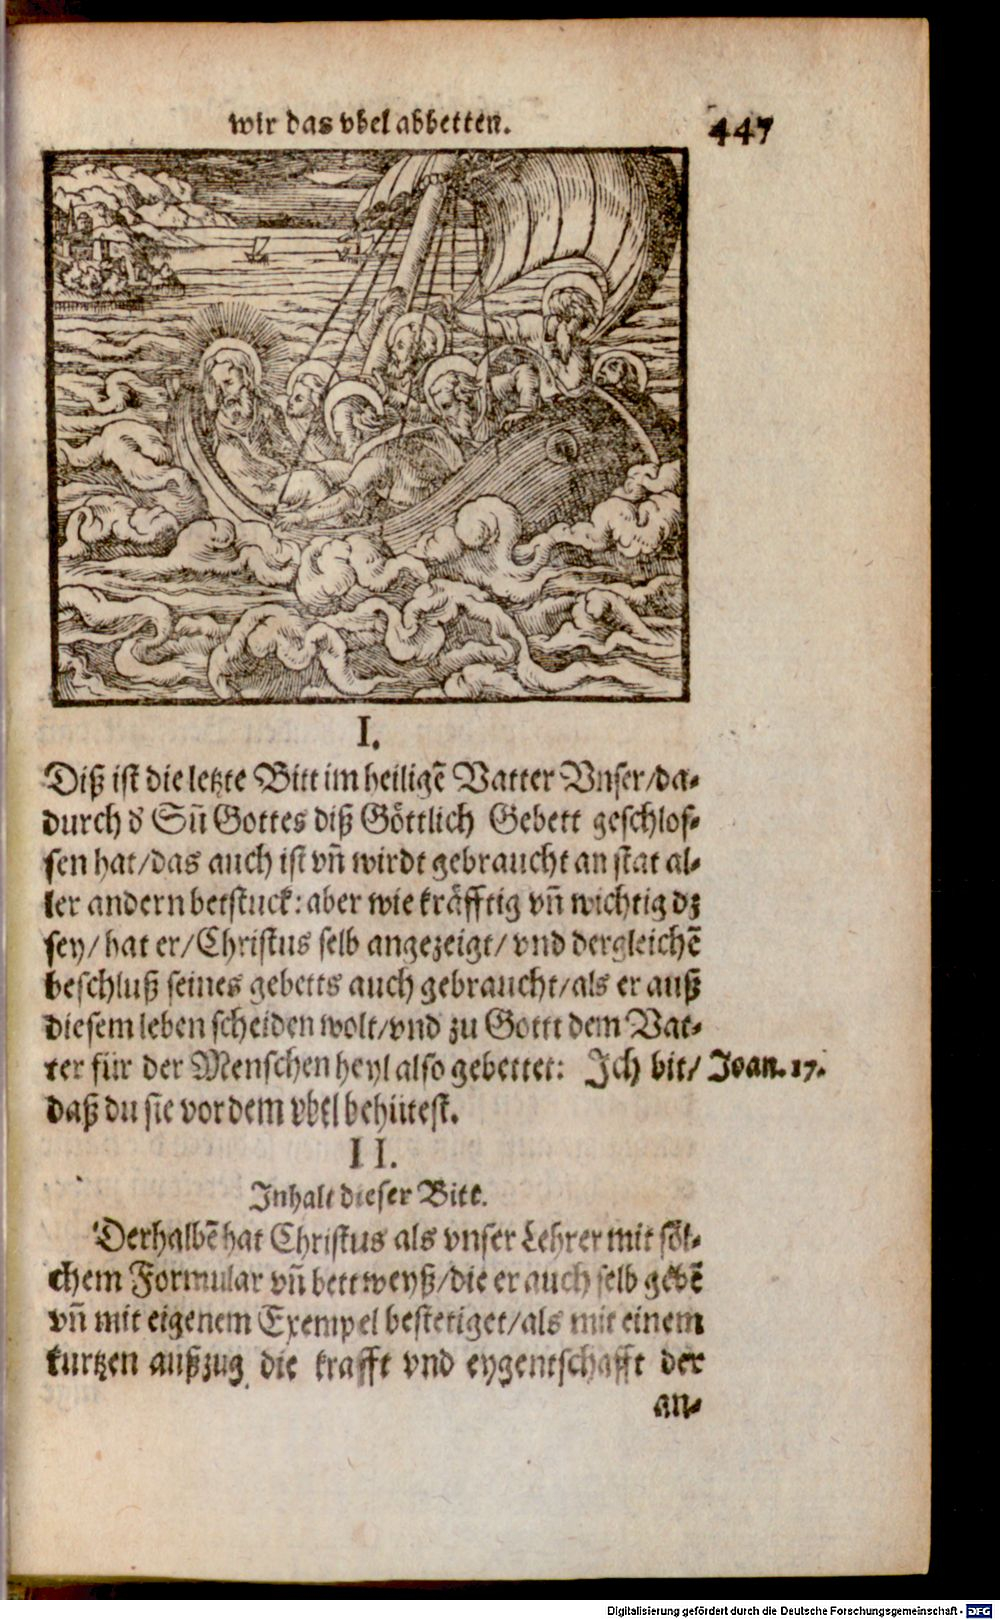 wir das vbel abbetten.
447
I.
Diß ist die letzte Bitt im heiligē Vatter Vnser/da-
durch d' Sū Gottes diß Göttlich Gebett geschlos-
sen hat/das auch ist vn̄ wirdt gebraucht an stat al-
ler andern betstuck: aber wie kräfftig vn̄ wichtig dz
sey/hat er/Christus selb angezeigt/vnd dergleichē
beschluß seines gebetts auch gebraucht/als er auß
diesem leben scheiden wolt/vnd zu Gottt dem Vat-
ter für der Menschen heyl also gebettet: Ich bit/
Joan. 17.
daß du sie vor dem vbel behütest.
II.
Inhalt dieser Bitt.
Derhalbē hat Christus als vnser Lehrer mit söl-
chem Formular vn̄ bettweyß/die er auch selb gebē
vn̄ mit eigenem Exempel bestetiget/als mit einem
kurtzen außzug die krafft vnd eygentschafft der
an-
Digitalisierung gefördert durch die Deutsche Forschungsgemeinschaft - DFG